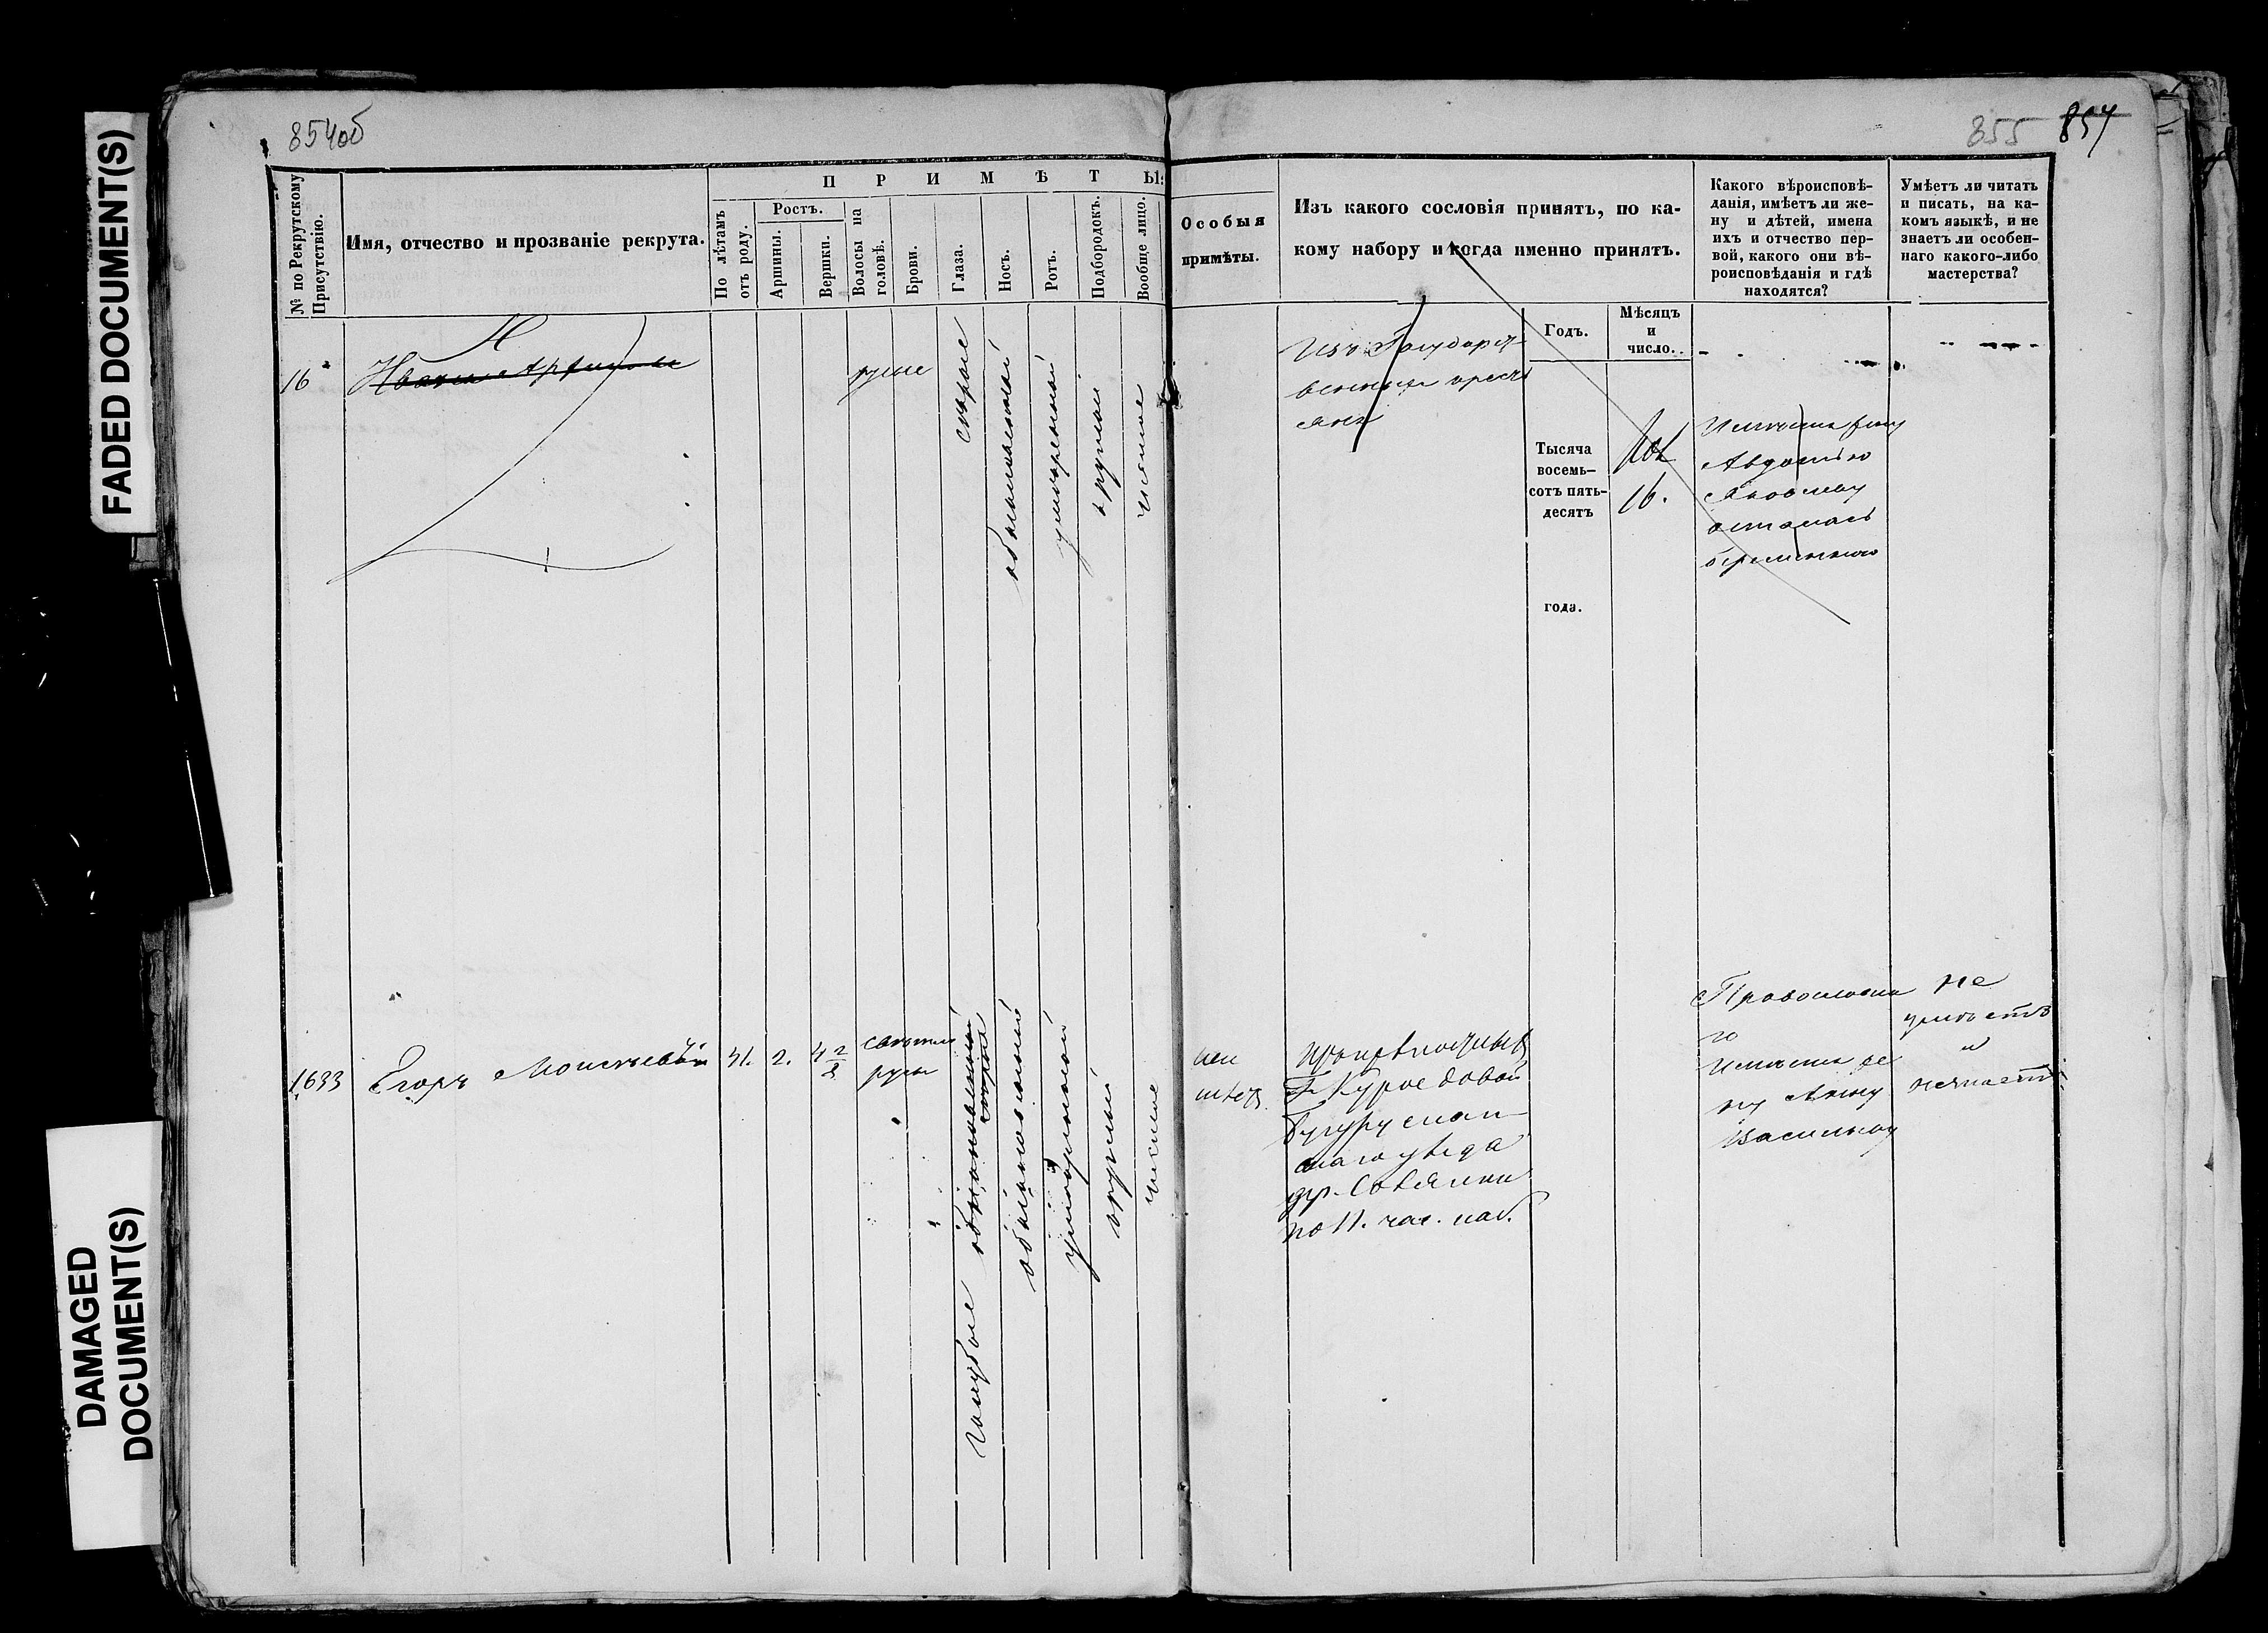 FADED DOCUMENT(S)
DAMAGED
DOCUMENT(S)
854об
855 857
№ по Рекрутскому
Присутствію.
Имя, отчество и прозваніе рекрута.
П Р И М Ѣ Т Ы:
По лѣтамъ
отъ роду.
Ростъ.
Аршины.
Вершки.
Волосы на
головѣ.
Брови.
Глаза.
Носъ.
Ротъ.
Подбородокъ.
Вообще лицо.
Особыя
примѣты.
Изъ какого сословія принятъ, по ка-
кому набору и когда именно принятъ.
Какого вѣроисповѣ-
данія, имѣетъ ли же-
ну и дѣтей, имена
ихъ и отчество пер-
вой, какого они вѣ-
роисповѣданія и гдѣ
находятся?
Умѣетъ ли читать
и писать, на ка-
комъ языкѣ, и не
знаетъ ли особен-
наго какого-либо
мастерства?
Годъ.
Мѣсяцъ
и
число.
16
Иванъ
русые
сѣрые
обыкновенный
умѣренный
круглый
чистое
Изъ Государст
венныхъ кресть
янъ
Тысяча
восемь-
сотъ пять-
десятъ
года.
16.
Имѣетъ жену
Авдотью
Яковлеву
осталась
беременною
1633
Егоръ Моисѣевъ
41.
2.
4 2/8
свѣтло
русые
голубые
обыкновенный
обыкновенный
умѣренный
круглый
чистое
Г. Куроѣдовой
Бугуруслан
скаго уѣзда
дер.
по 11. час. наб.
Православна
го
Имѣетъ же
ну Анну
Васильеву
не
умѣетъ
и
незнаетъ